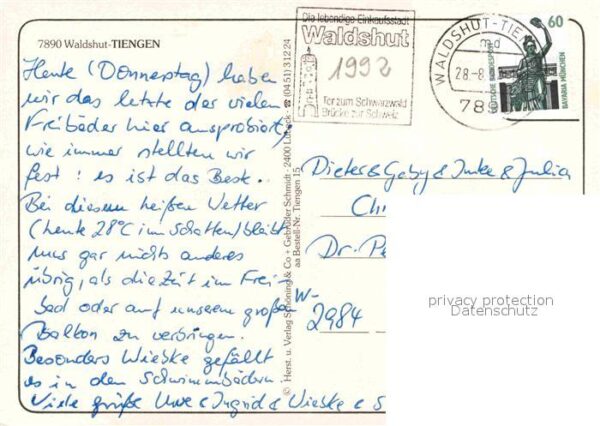 7890 Waldshut-TIENGEN
Heute (Donnerstag) haben
wir das letzte der vielen
Freibäder hier ausprobiert,
wie immer stellten wir
fest: es ist das Beste.
Bei diesem heißen Wetter
(heute 28°C im Schatten) bleibt
uns gar nichts anderes
übrig, als die Zeit im Frei-
bad oder auf unserem großen
Balkon zu verbringen.
Besonders Wiebke gefällt
es in den Schwimmbädern.
Viele grüße Uwe & Ingrid & Wiebke & S
© Herst. u. Verlag Schöning & Co + Gebrüder Schmidt · 2400 Lübeck · ☎ (0451) 31224
aa Bestell-Nr. Tiengen 15
Die lebendige Einkaufsstadt
Waldshut
1992
Tor zum Schwarzwald
Brücke zur Schweiz
WALDSHUT-TIEN
md
28.-8.
789
60
DEUTSCHE BUNDESPOST
BAVARIA MÜNCHEN
Dieter & Gaby & Imke & Julia
Ch
Dr. Pe
W-
2984
privacy protection
Datenschutz